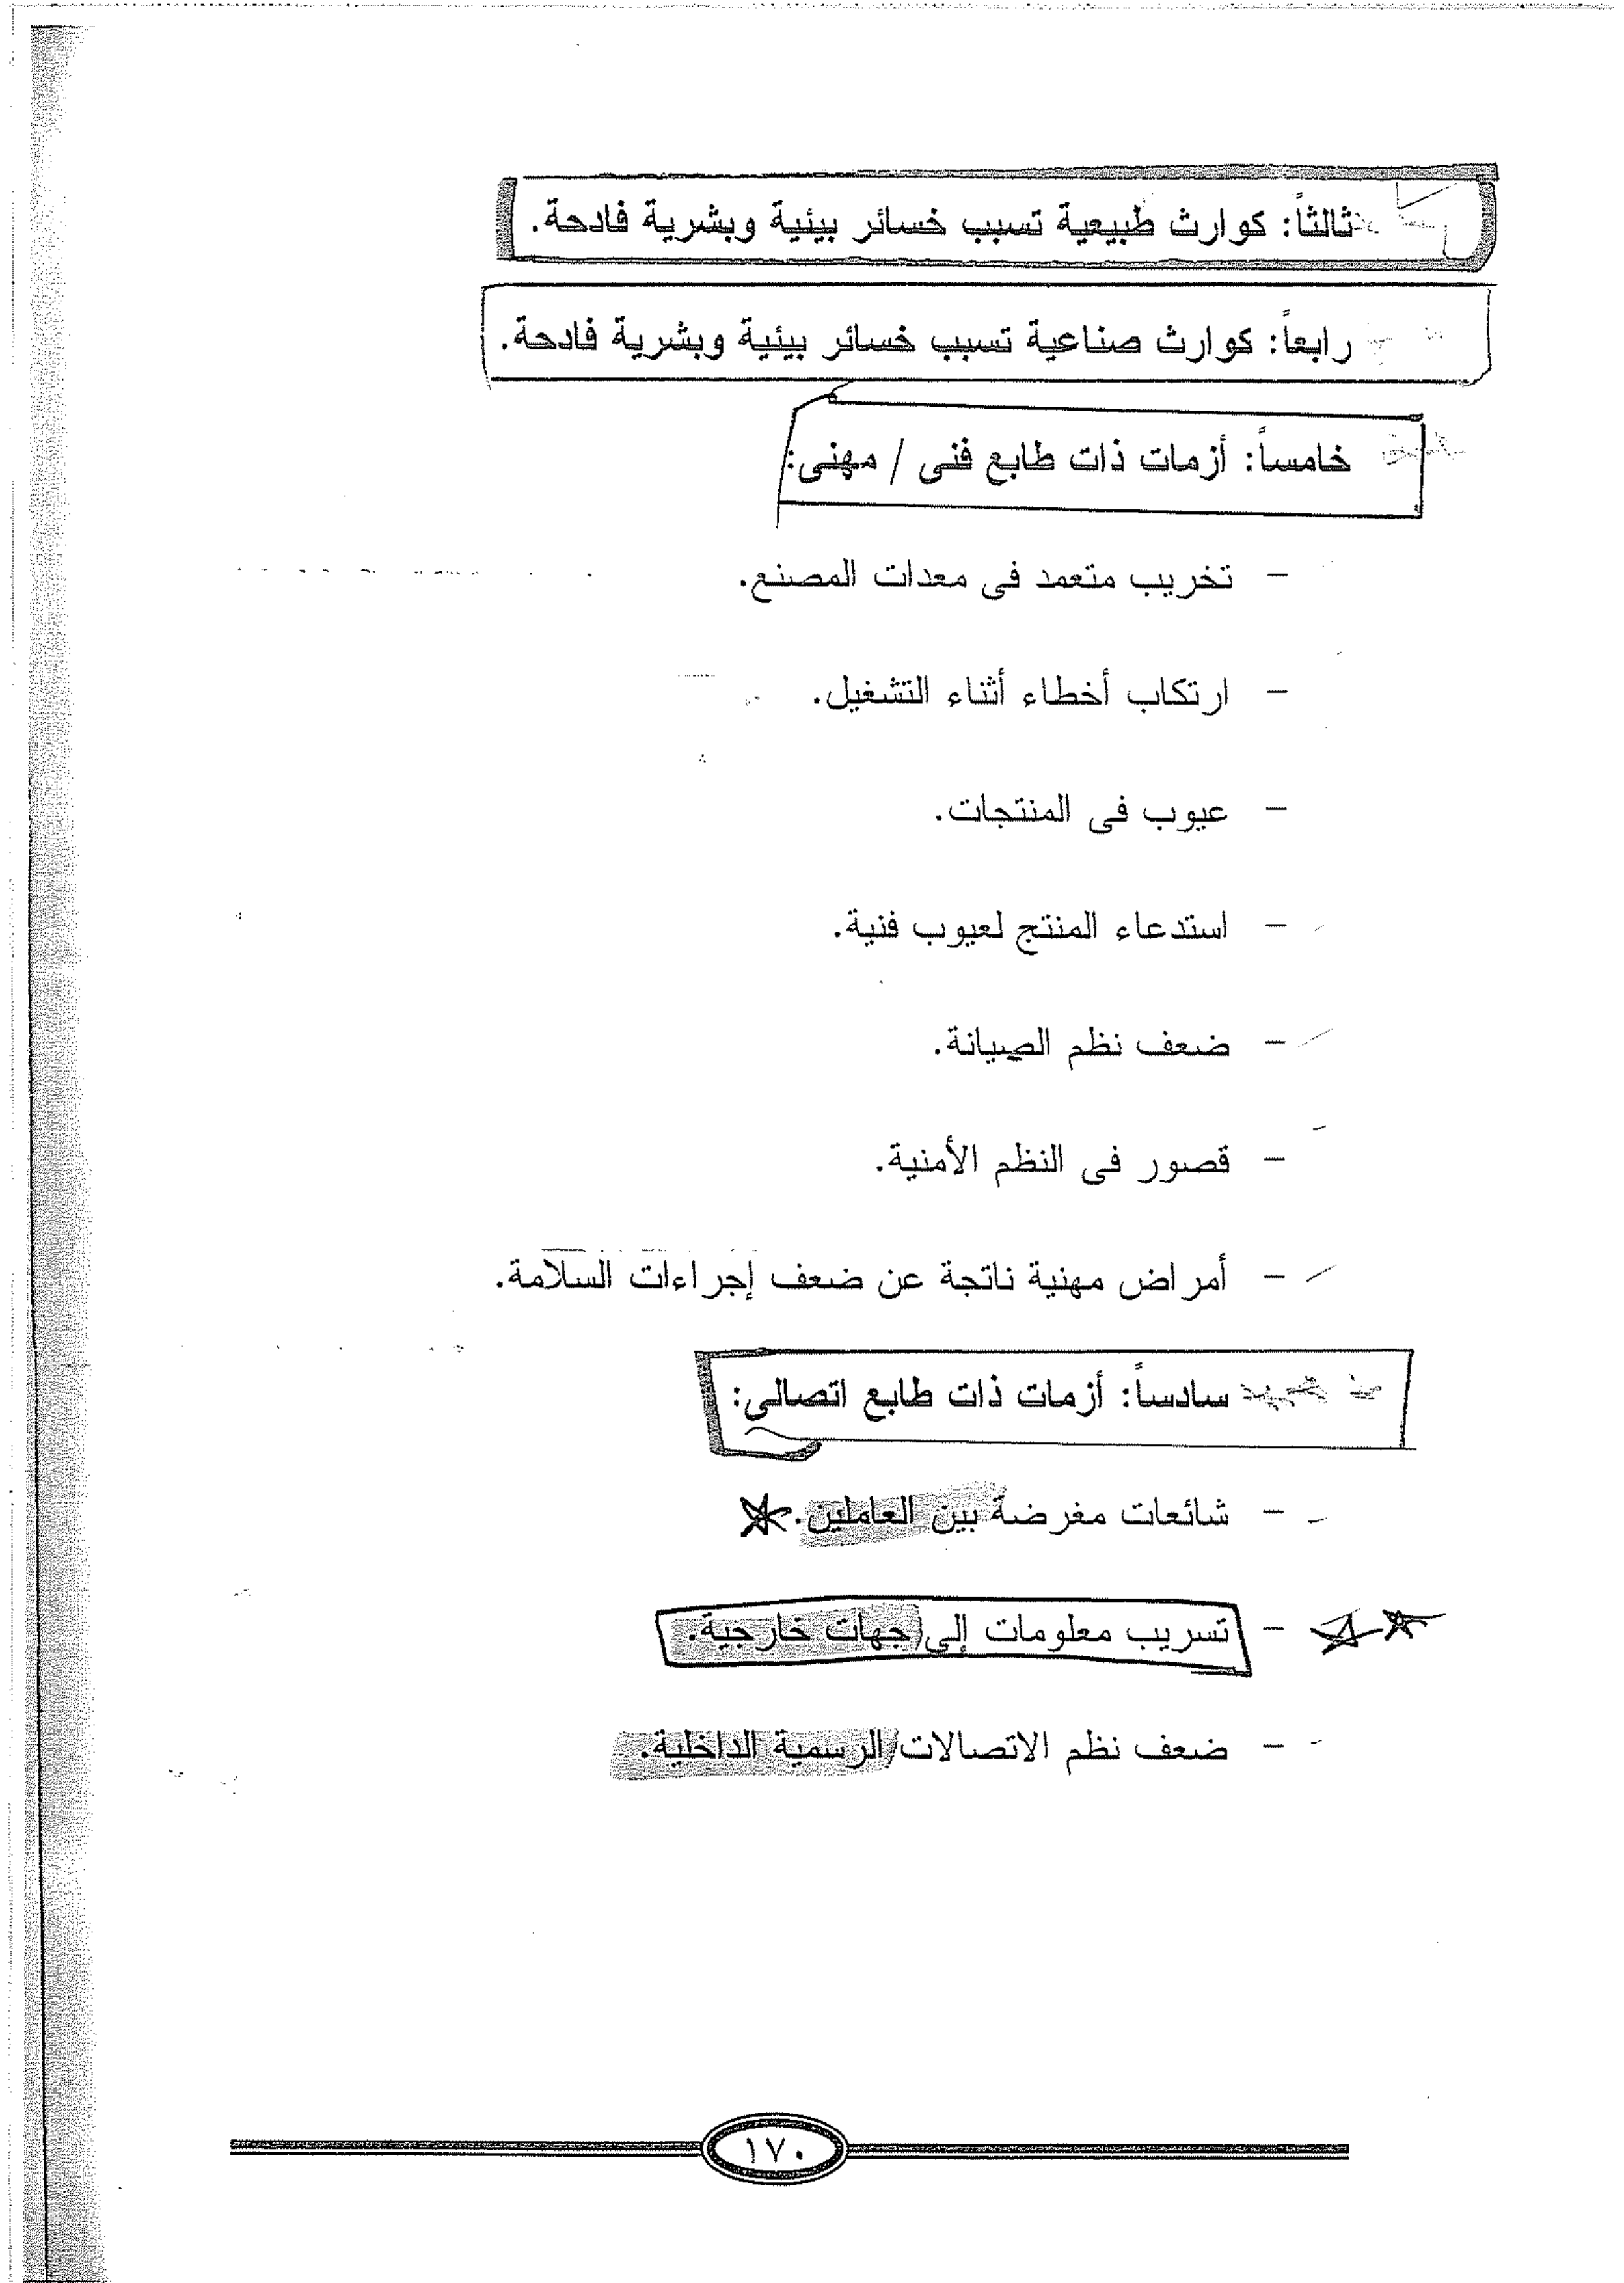 ثالثاً: كوارث طبيعية تسبب خسائر بيئية وبشرية فادحة.
رابعاً: كوارث صناعية تسبب خسائر بيئية وبشرية فادحة.
خامساً: أزمات ذات طابع فنى / مهنى:
- تخريب متعمد فى معدات المصنع.
- ارتكاب أخطاء أثناء التشغيل.
- عيوب فى المنتجات.
- استدعاء المنتج لعيوب فنية.
- ضعف نظم الصيانة.
- قصور فى النظم الأمنية.
- أمراض مهنية ناتجة عن ضعف إجراءات السلامة.
سادساً: أزمات ذات طابع اتصالى:
- شائعات مغرضة بين العاملين.
- تسريب معلومات إلى جهات خارجية.
- ضعف نظم الاتصالات الرسمية الداخلية.
١٧٠